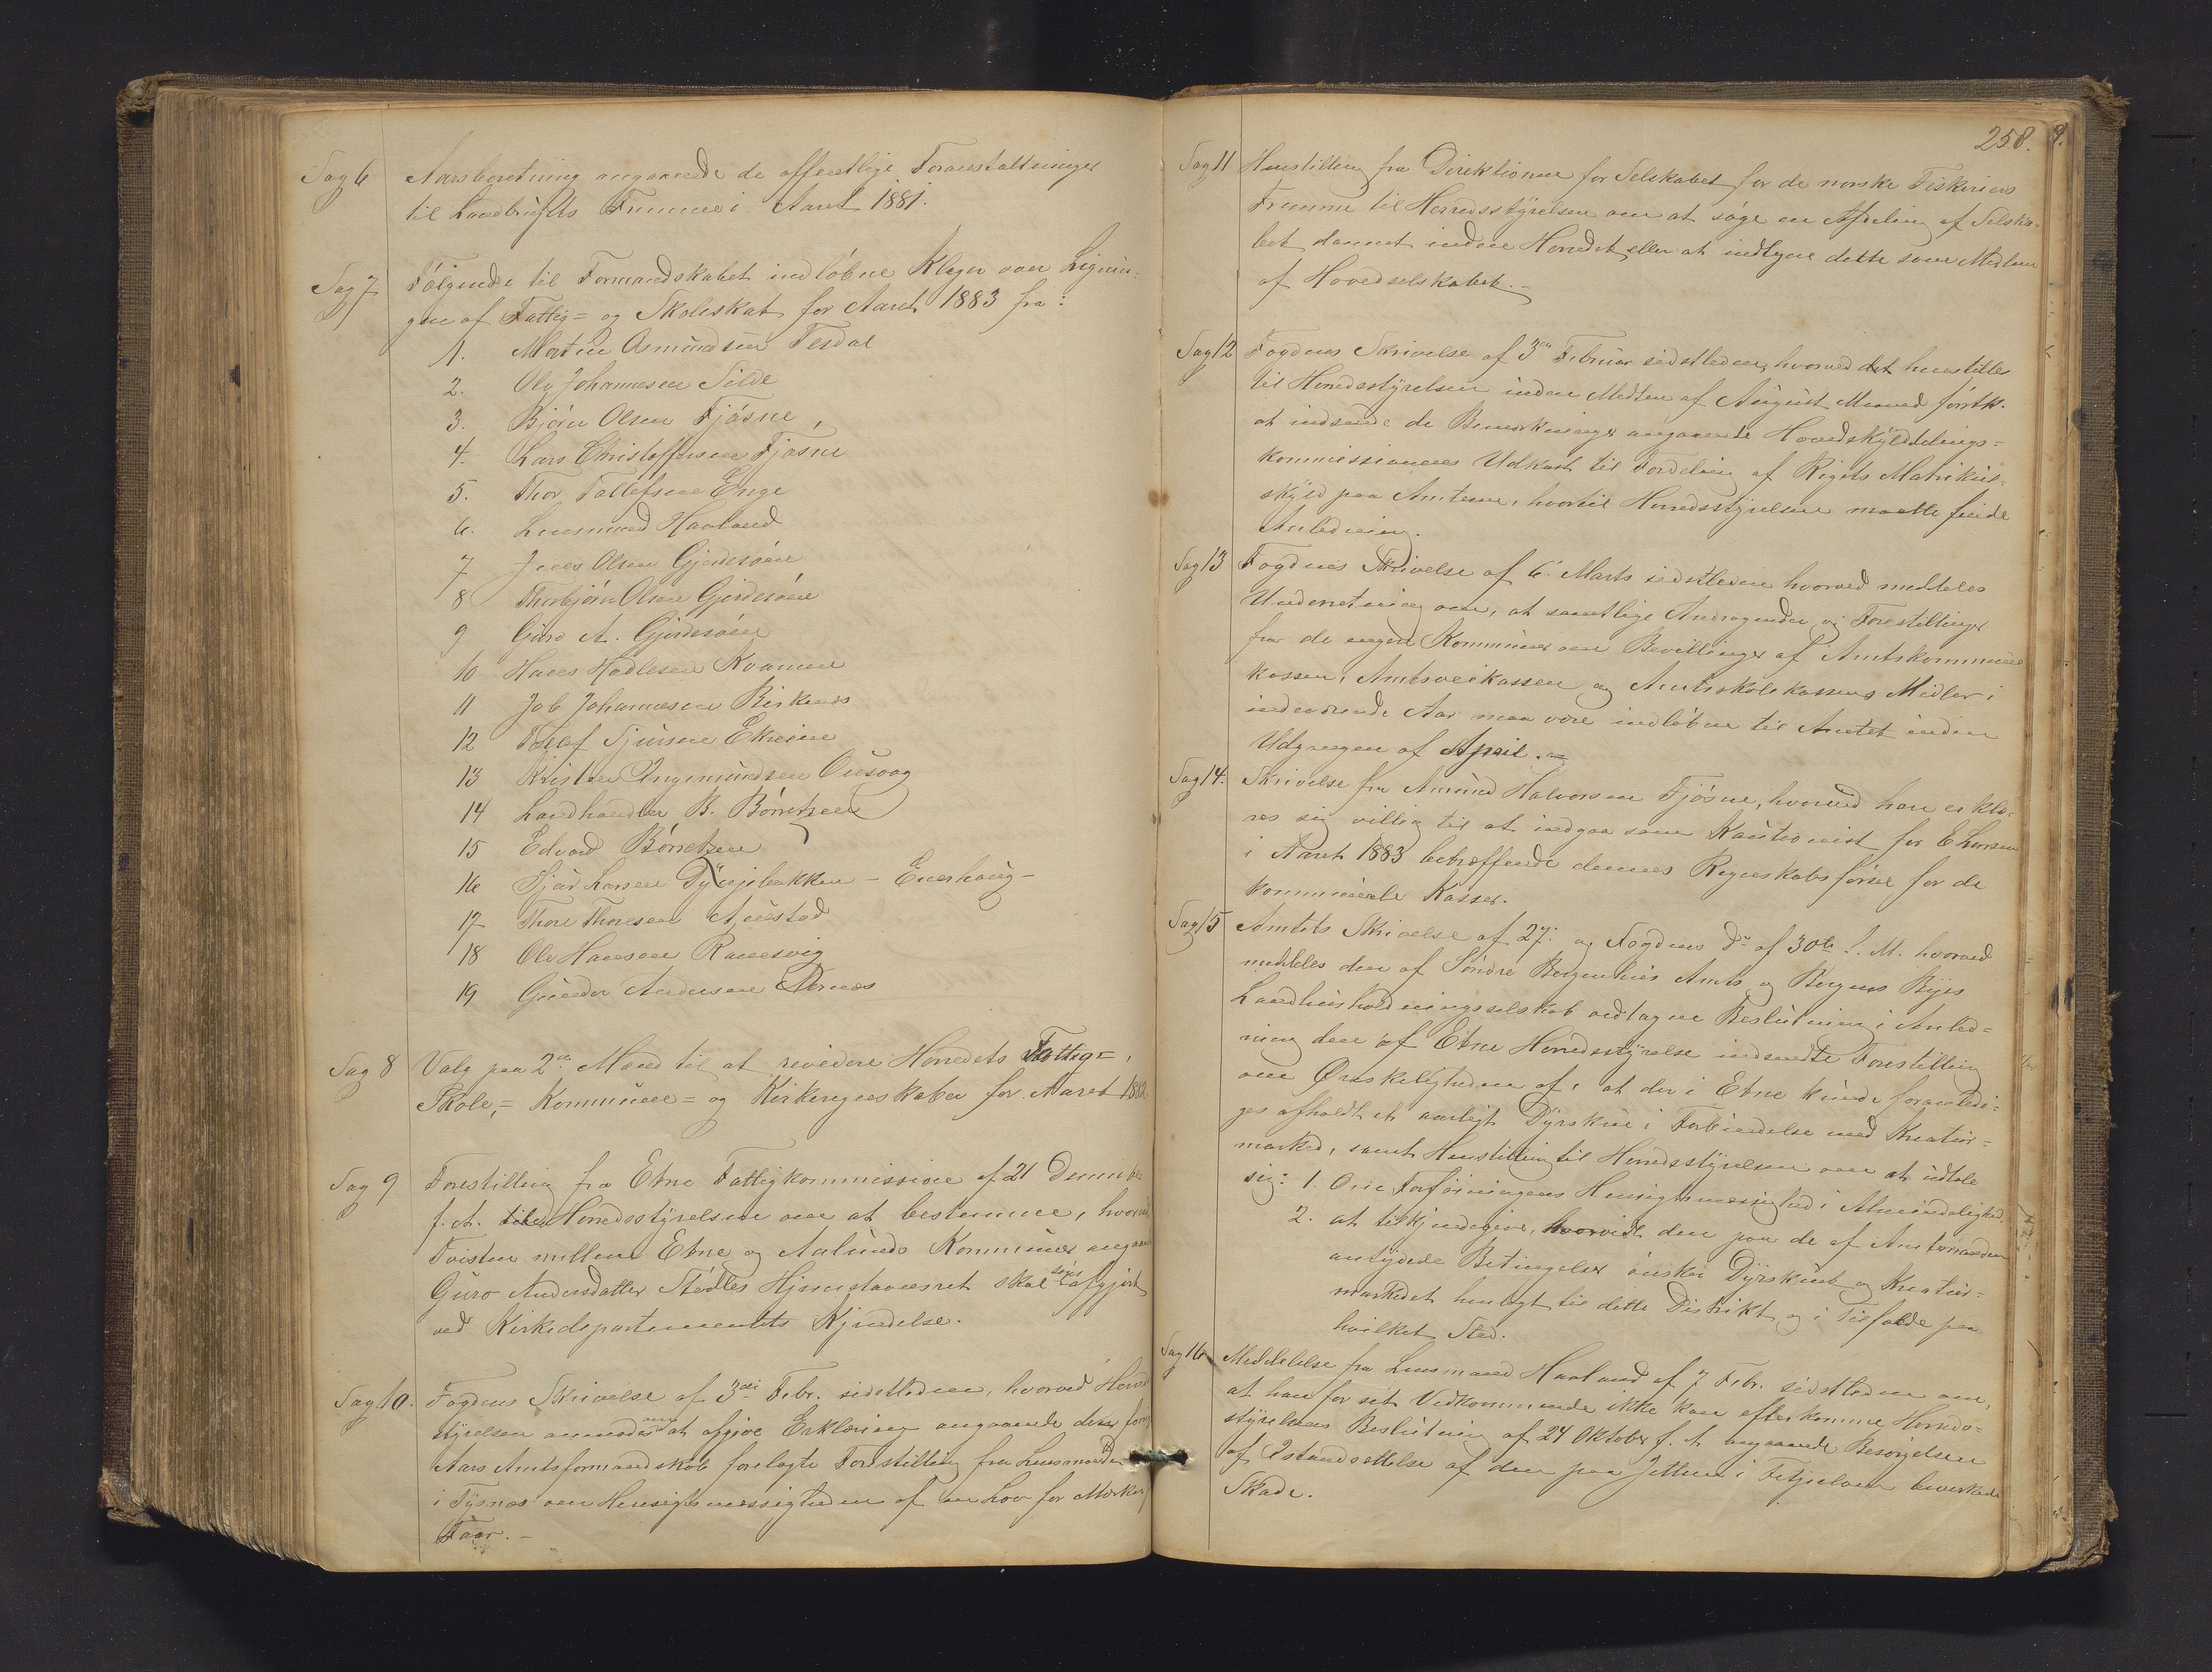 Sag 6
Aarsberetning angaaende de offentlige Foranstaltninger
til Landbrugets Fremme i Aaret 1881.
Sag 7
Følgende til Formandskabet indløbne Klager over Lignin-
gen af Fattig= og Skoleskat for Aaret 1883 fra:
1. Martin Osmundsen Tesdal
2. Ole Johannesen Silde
3. Bjørn Olsen Fjøsne
4. Lars Christoffersen Fjøsne
5. Thor Tollefsen Enge
6. Lensmand Haaland
7 Jens Olsen Gjerdesøen
8 Thorbjørn Olsen Gjerdesøen
9 Guro A. Gjerdesøen
10 Hans Hodlesen Kvamen
11 Job Johannesen Birkenes
12 Tollef Sjursen Ekreine
13 Kristen Ingemundsen Ousvog
14 Landhandler B. Børretzen
15 Edvard Børretzen
16 Sjur Larsen Dynjebakken - Enerhaug -
17 Thore Thoresen Austad
18 Ole Hansen Ramsvig
19 Gunder Andersen Nernes
Sag 8
Valg paa 2de Mænd til at revidere Herredets Fattig=,
Skole,= Kommune= og Kirkeregnskaber for Aaret 1882
Sag 9
Forestilling fra Etne Fattigkommission af 21 Decembe
f. A. til Herredsstyrelsen om at bestemme, hvorvidt
Tvisten mellem Etne og Aalunds Kommuner angaaende
Guro Andersdatter Stødles Hjemstavnsret skal søges afgjort
ved Kirkedepartementets Kjendelse.
Sag 10.
Fogdens Skrivelse af 3die Febr. sidstleden, hvorved Herreds
styrelsen anmodes om at afgive Erklæring angaaende det for forrige
Aars Amtsformandskab forelagte Forestilling fra Lensmanden
i Tysnes om Hensigtsmæssigheden af en Lov for Mærker
Faar. -
258.
Sag 11
Henstilling fra Direktionen for Selskabet for de norske Fiskeriers
Fremme til Herredsstyrelsen om at søge en Afdeling af Selska-
bet dannet inden Herredet eller at indtegne dette som Medlem
af Hovedselskabet. -
Sag 12
Fogdens Skrivelse af 3de Februar sidstleden, hvorved det henstilles
til Herredsstyrelsen inden Midten af August Maaned førstk.
at indsende de Bemærkninger angaaende Hovedskylddelings=
kommissionens Udkast til Fordeling af Rigets Matrikul-
skyld paa Amterne, hvortil Herredsstyrelsen maatte finde
Anledning.
Sag 13
Fogdens Skrivelse af 6. Marts sidstleden hvorved meddeles
Underretning om, at samtlige Andragender og Forestillinger
fra de enkelte Kommuner om Bevillinger af Amtskommune
kassen, Amtsveikassen og Amtsskolekassens Midler i
indeværende Aar maa være indløbne til Amtet inden
Udgangen af April.
Sag 14.
Skrivelse fra Amund Halvorsen Fjøsne, hvorved han erklæ-
res sig villig til at indgaa som Kautionist for E Larsen
i Aaret 1883 betræffende dennes Regnskabsførsel for de
kommunale Kasser.
Sag 15
Amtets Skrivelse af 27. og Fogdens do af 30te f. M. hvorved
meddeles den af Søndre Bergenhus Amts og Bergens Byes
Landhusholdningsselskab vedtagne Beslutning i Anled=
ning den af Etne Herredsstyrelse indsendte Forestilling
om Ønskeligheden af, at der i Etne kunde foranledi-
ges afholdt et aarligt Dyrskue i Forbindelse med Kreatur=
marked, samt Henstilling til Herredsstyrelsen om at udtale
sig: 1. Om Forføiningens Hensigtsmæssighed i Almindelighed.
2. at tilkjendegive, hvorvidt den paa de af Amtmanden
antydede Betingelser ønsker Dyrskuet og Kreatur=
markedet henlagt til dette Distrikt og i Tilfælde paa
hvilket Sted.
Sag 16
Meddelelse fra Lensmand Haaland af 7 Febr. sidstleden om,
at han for sit Vedkommende ikke kan efterkomme Herreds-
styrelsens Beslutning af 24 Oktober f. A. angaaende Besørgelsen
af Istandsættelse af den paa Jetteen i Fitjeelven bevirkede
Skade.